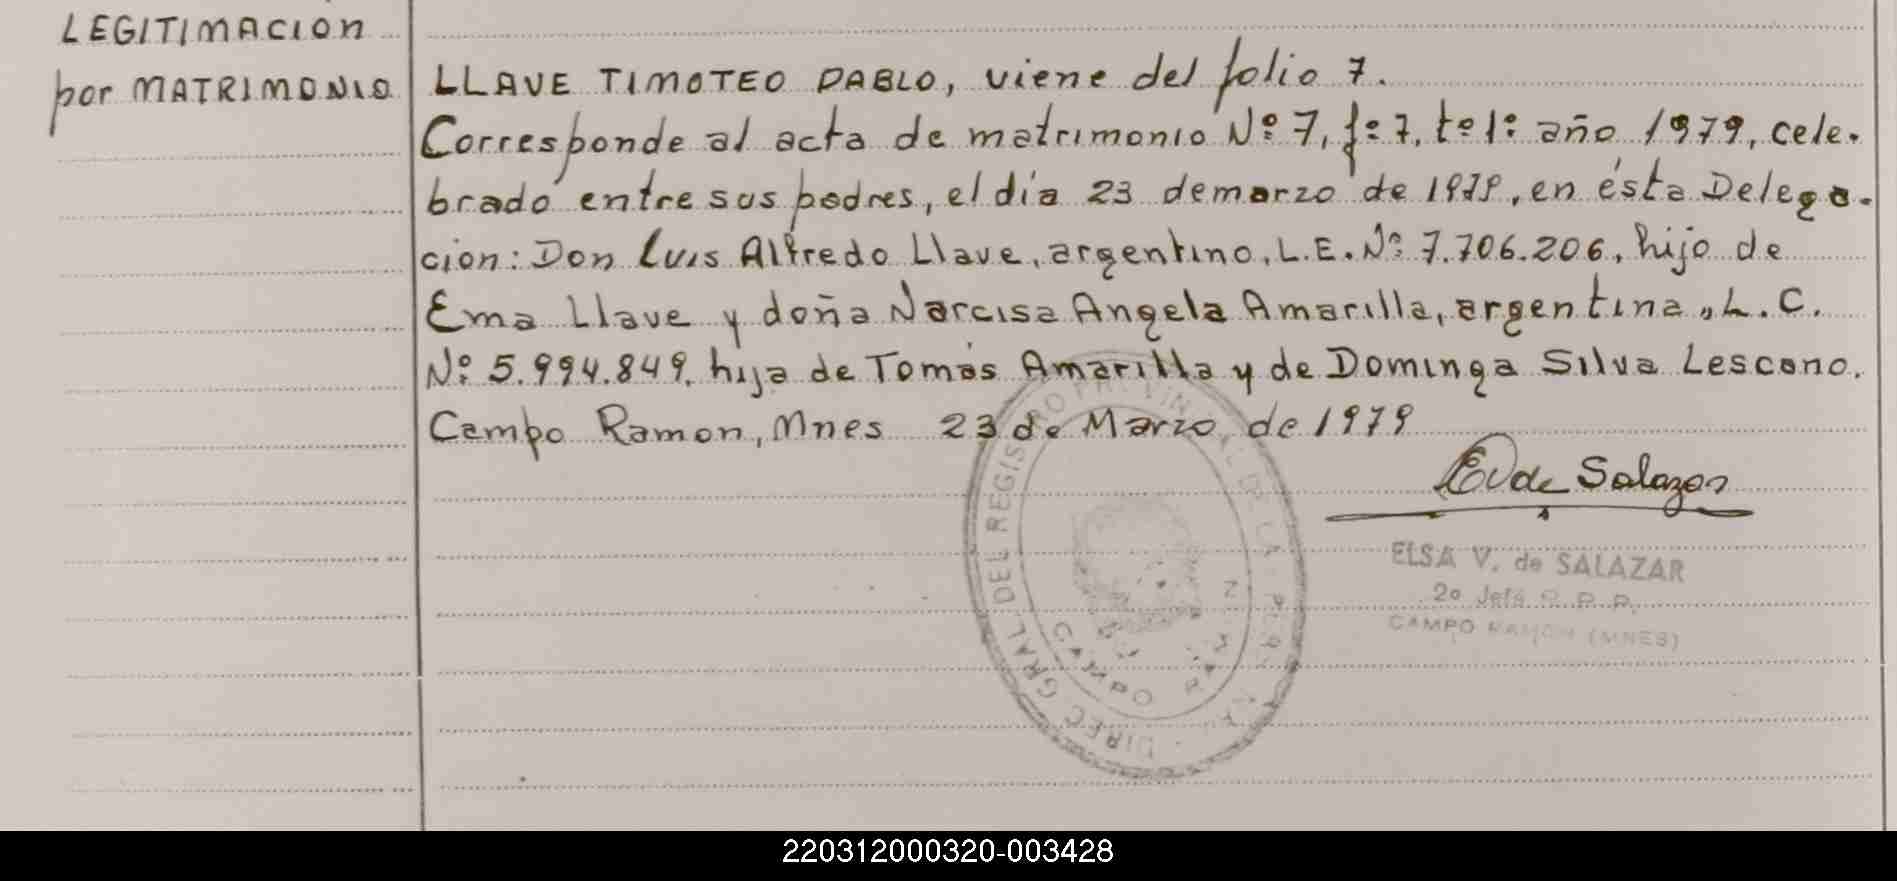 LEGITIMACION
por MATRIMONIO
LLAVE TIMOTEO PABLO, viene del folio 7.
Corresponde al acta de matrimonio Nº 7, fº 7, tº 1º año 1979, cele-
brado entre sus padres, el dia 23 de marzo de 1979, en ésta Delega-
cion: Don Luis Alfredo Llave, argentino, L.E. Nº 7.706.206, hijo de
Ema Llave y doña Narcisa Angela Amarilla, argentina, L.C.
Nº 5.994.849, hija de Tomás Amarilla y de Dominga Silva Lescano.
Campo Ramon, Mnes 23 de Marzo de 1979
EV de Salazar
ELSA V. de SALAZAR
2º Jefe R.P.P.
CAMPO RAMON (MNES)
DIREC GRAL DEL REGISTRO PROVINCIAL DE LAS PER
CAMPO RAM
220312000320-003428